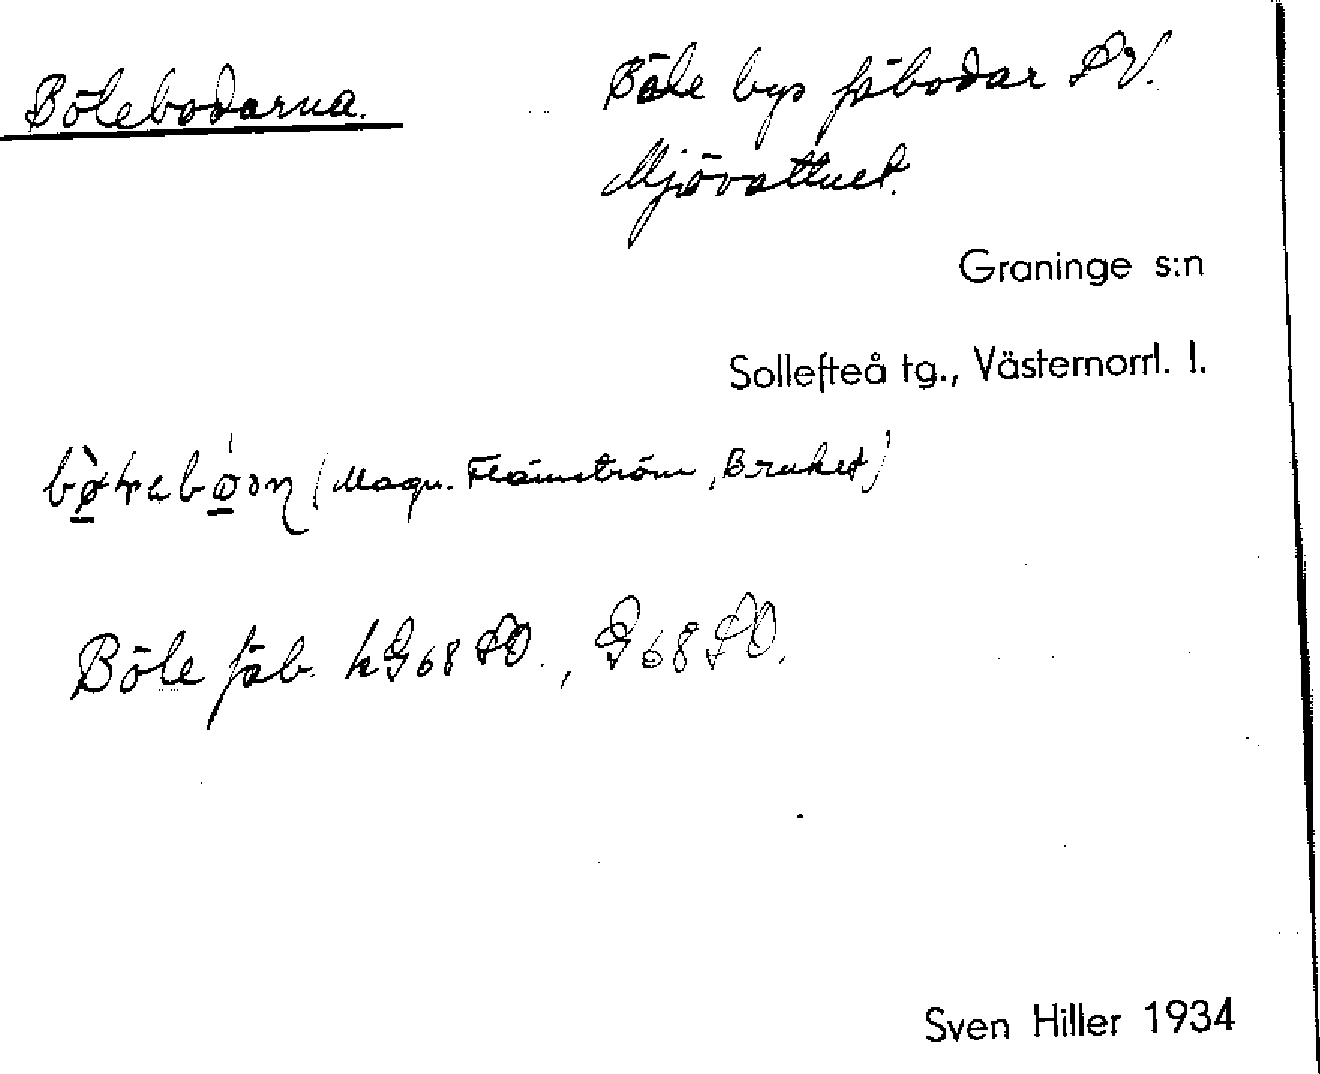 Bölebodarna.
Böle bys fäbodar SV.
Mjövattnet.
Graninge s:n
Sollefteå tg., Västernorrl. l.
(Magn. Flömström, Bruket)
Böle fäb. kG68SO., G68SO.
Sven Hiller 1934